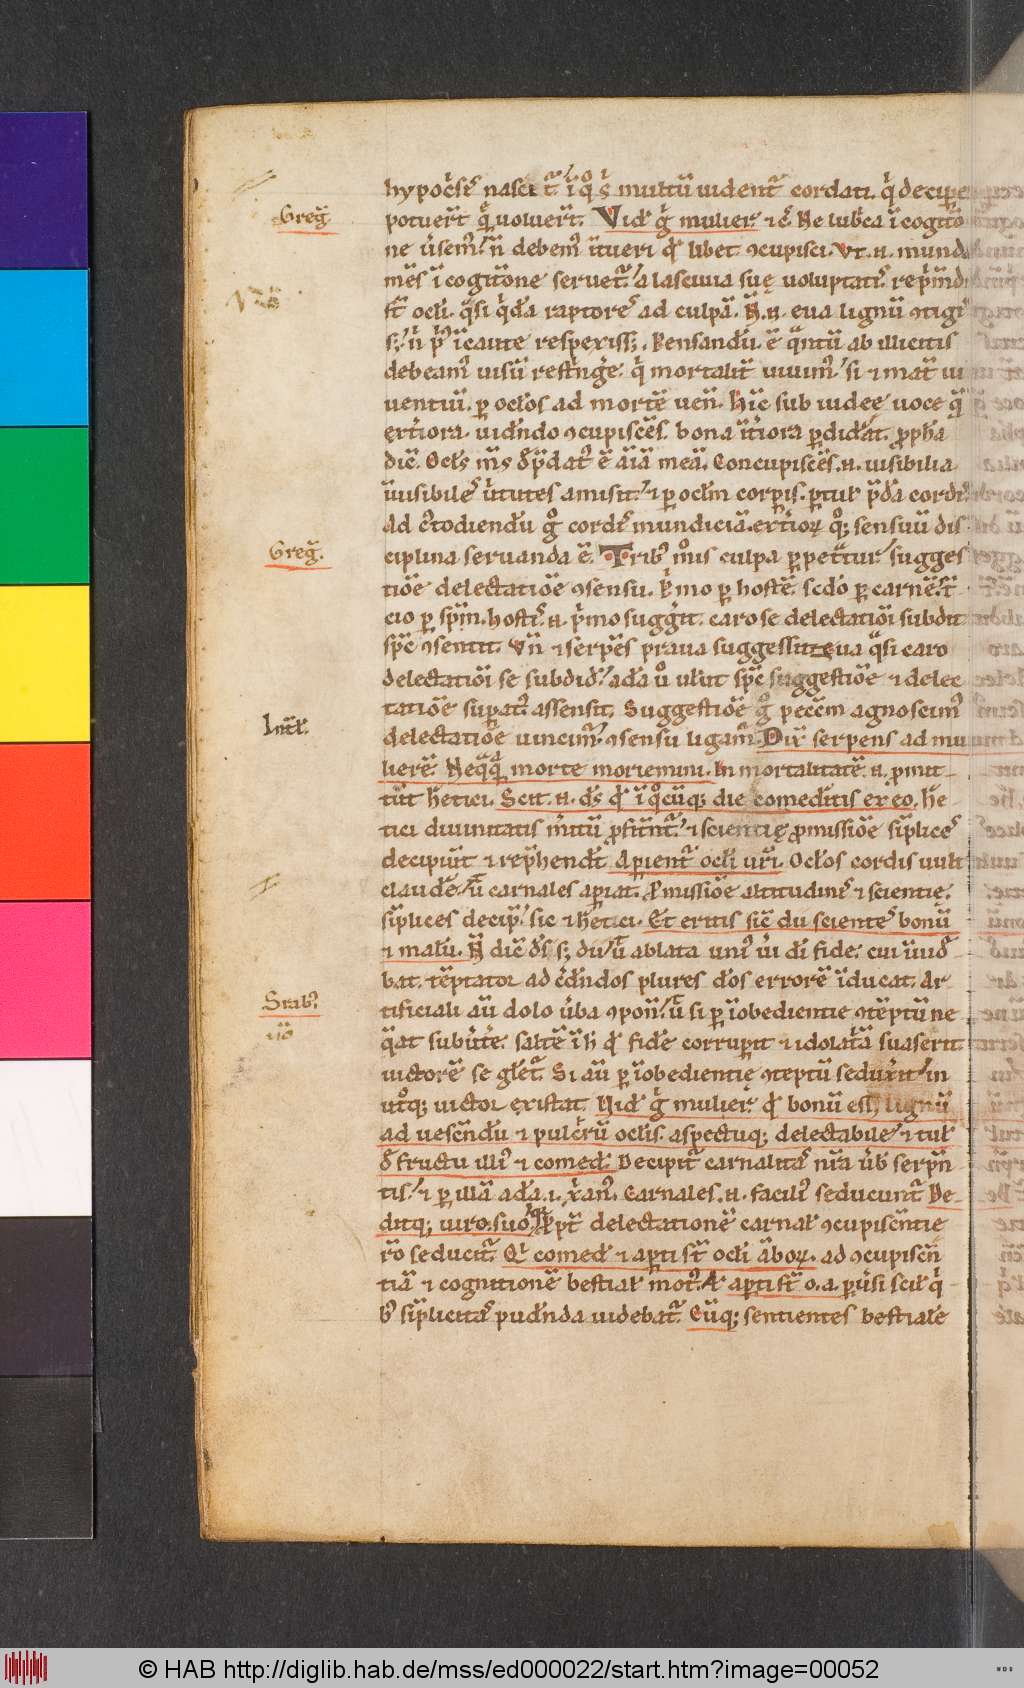 hypoc̄sis nascit̄ ī qͦs multū uident̄ cordati. q̓ decipe
Greg̃.
potuer̄t q̓ uoluer̄t. Vid' gͥ mulier ⁊ c̄. Ne lub̓ca ī cogitō
ne u̓sem᷒. n̄ debem᷒ ītueri qđ libet ꝯcupisci. Vt .n. mund
mēs ī cogit̄one seruet̄. a lasciuia suę uoluptatis rep̓m̄di
st̄ ocli. q̄si q̓dā raptores ad culpā. N̄ .n. eua lignū ꝯtigis
s; n̄ p̓᷒ īcaute respexiss;. Pensandū ē q̄ntū ab illicitis
debeam᷒ uisū rest̓nḡe. q̓ mortalit̄ uiuim᷒. si ⁊ mat̄ ui
uentiū. ꝑ oclos ad mortē uen̄. Hīc sub iudee uoce q̄
ext̓iora. uid̓ndo ꝯcupiscēs. bona īt̓iora ꝑdid̓at. ꝓpħa
dic̄. Ocl's m̄s dp̄dat᷒ ē aīā meā. Concupiscēs .n. uisibilia
īuisibiles u̓tutes amisit. ⁊ ꝑ oclm corꝑis. ꝑtul' p̄dā cordis.
Ad c᷒todiendū gͦ cordis mundiciā. ext̓ioꝝ qͦq; sensuū dis
Greg̃.
ciplina seruanda ē. Trib᷒ mͦis culpa ꝑpet̄tur. sugges
tiōe delectatiōe ꝯsensu. P̓mo ꝑ hostē. sc̄do ꝑ carnē. t̄
cio ꝑ sp̄m. hostis .n. p̓mo sugḡit. caro se delectatiōi subdit
sp̄c ꝯsentit. Vn̄ ⁊ serpēs praua suggessit. eua q̄si caro
delectatiōi se subdid'. adā uͦ ul'ut sp̄c suggestiōe ⁊ delec
tatiōe supat᷒ assensit. Suggestiōe gͦ pecc̄m agnoscim᷒
Int̄l'.
delectatiōe uincim᷒. ꝯsensu ligam᷒. Dix̄ serpens ad mu
lierē. Neq̄q̄ morte moriemini. In mortalitatē .n. ꝓmit
tūt h̄etici. Scit .n. d̄s qđ ī qͦcūq; die comed̓itis ex eo. he
tici diuinitatis m̓itū ꝓfitn̄t̄. ⁊ scientię ꝓmissiōe sīplices
decipiūt ⁊ rep̄hendt̄. Apient̄ ocl'i ur̄i. Oclos cordis uult
claud̓e. ū carnales apiat. P̓missiōe altitudinis ⁊ scientię.
sīplices decip̄. sic ⁊ h̄etici. Et eritis sic̄ dii scientes bonū
⁊ malū. N̄ dic̄ d̓s s; dii. ū ablata uni᷒ ui᷒ di' fide. cui īuid̓
bat. tēptator ad c̓d̓ndos plures d'os errorē īducat. Ar
Strab᷒.
tificiali aū dolo u̓ba ꝯpon̄. ū si ꝑ īobedientie ꝯtēptū ne
q̄at subu̓t̓e. saltē ī h̄ qđ fidē corrupit ⁊ idolat̓ā suaserit.
uictorē se gl'et̄. Si aū ꝑ īobedientię ꝯteptū seduxit. in
ut̓q; uictor existat. Vid' gͥ mulier. qđ bonū ess; lignū
ad uescēdū ⁊ pulc̄rū oclis. aspectuq; delectabile. ⁊ tul'
d' fructu illi᷒ ⁊ comed'. Decipit̄ carnalitas n̄ra u̓b' serpn̄
tis. ⁊ ꝑ illā adā .i. x̄an᷒. Carnales .n. facili᷒ seducunt̄. De
ditq; uiro. suo. P̓pt̄ delectationē carnal' ꝯcupiscn̄tie
r̄o seducit̄. Qi comed' ⁊ aꝑti st̄ ocli āboꝝ. ad ꝯcupiscn̄
tiā ⁊ cognitionē bestial' mot᷒. Ł aꝑti st̄ o. a. ꝑu̓si scil' q̓
b᷒ sīplicitas pud̓nda uidebat̄. Cūq; sentientes bestiale
© HAB http://diglib.hab.de/mss/ed000022/start.htm?image=00052